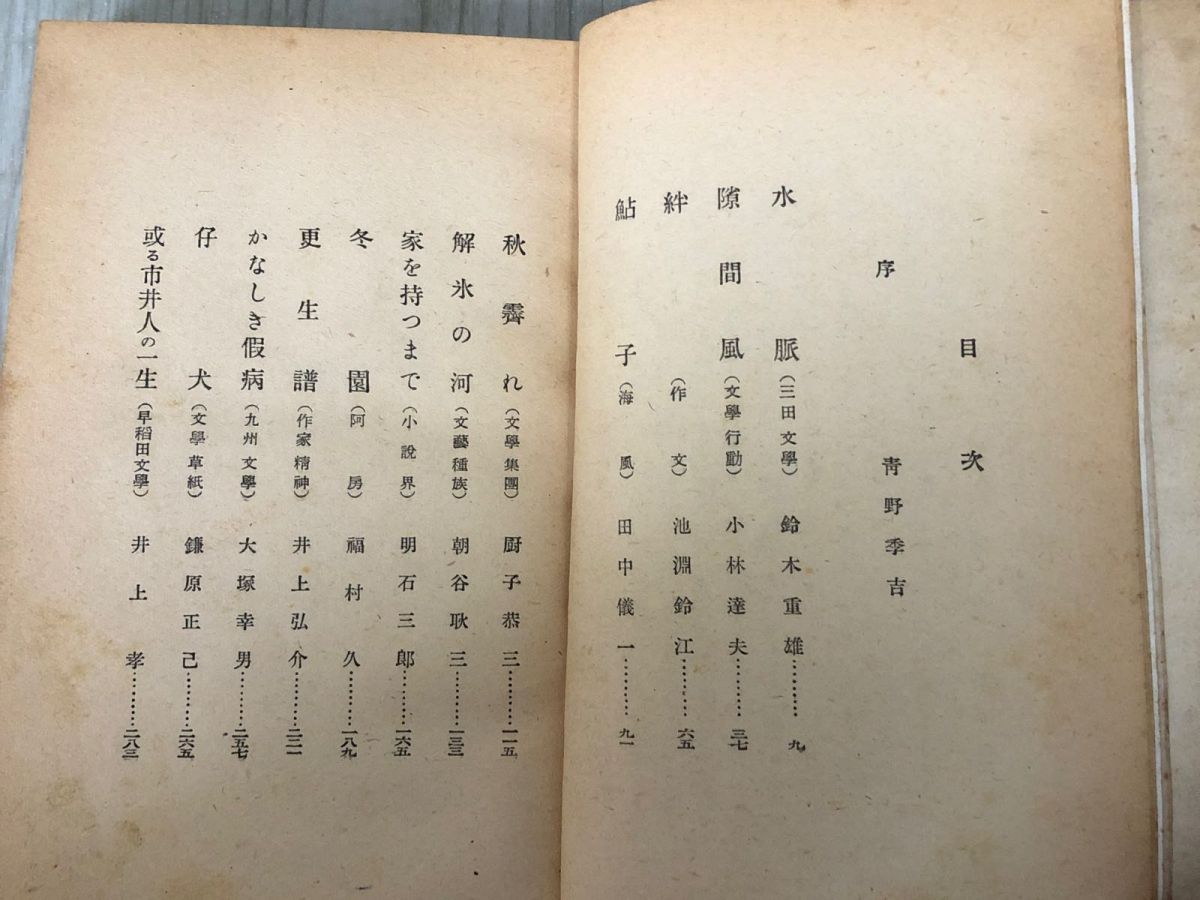 目次
序 靑野季吉
水脈（三田文學）鈴木重雄………九
隙間風（文學行動）小林達夫………三七
絆（作文）池淵鈴江………六五
鮎子（海風）田中儀一………九一
秋霽れ（文學集團）厨子恭三………一一五
解氷の河（文藝種族）朝谷耿三………一三三
家を持つまで（小說界）明石三郎………一六五
冬園（阿房）福村久………一八九
更生譜（作家精神）井上弘介………二二一
かなしき假病（九州文學）大塚幸男………二五七
仔犬（文學草紙）鎌原正己………二六五
或る市井人の一生（早稻田文學）井上孝………二八三